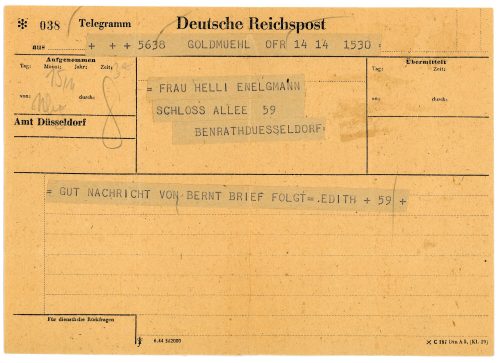 ✻ 038 Telegramm Deutsche Reichspost
aus + + +5638 GOLDMUEHL OFR 14 14 1530 =
Aufgenommen
Tag: Monat: Jahr: Zeit:
von: durch:
Übermittelt
Tag: Zeit:
an: durch:
= FRAU HELLI ENELGMANN
SCHLOSS ALLEE 59
BENRATHDUESSELDORF=
Amt Düsseldorf
= GUT NACHRICHT VON BERNT BRIEF FOLGT= .EDITH + 59 +
Für dienstliche Rückfragen
6.44 542000
× C 187 Din A 5, (Kl. 29)